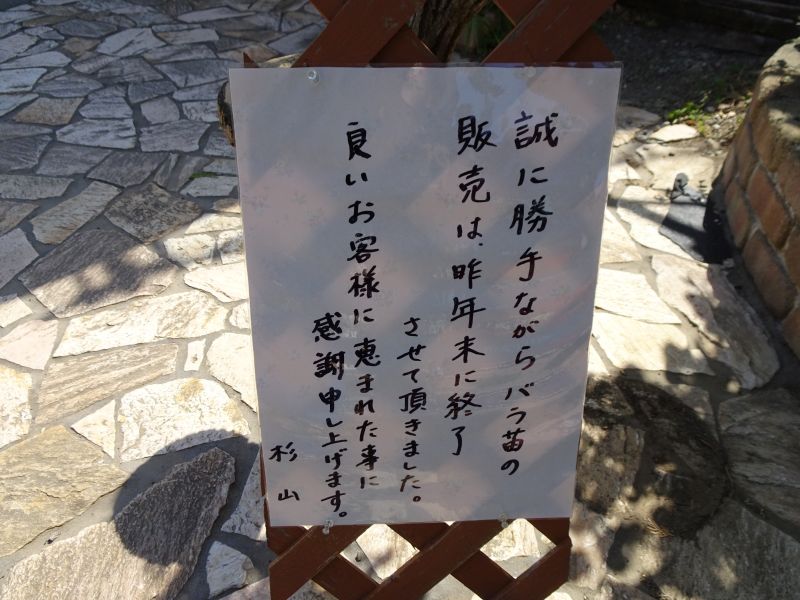 誠に勝手ながらバラ苗の
販売は、昨年末に終了
させて頂きました。
良いお客様に恵まれた事に
感謝申し上げます。
杉山